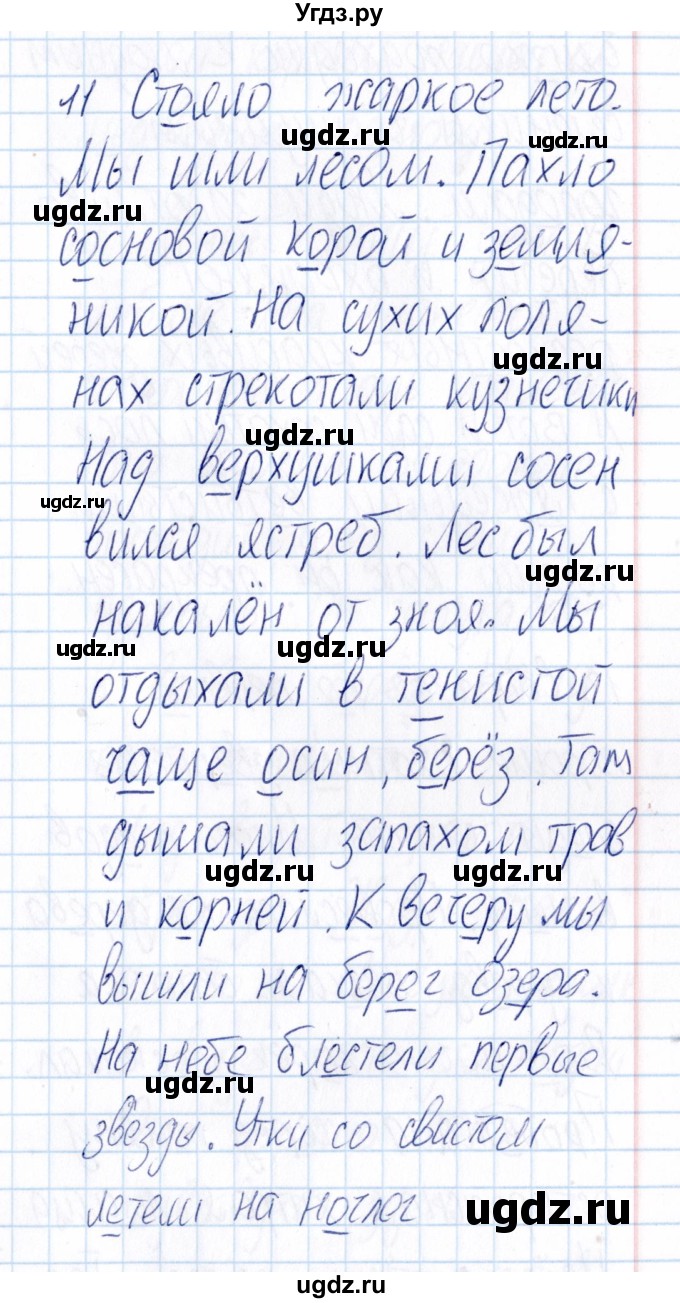 Угдз.ру
11 Стояло жаркое лето.
ugdz.ru ugdz.ru
Мы шли лесом. Пахло
ugdz.ru
сосновой корой и земля-
никой. На сухих поля-
ugdz.ru
нах стрекотали кузнечики
ugdz.ru
Над верхушками сосен
ugdz.ru
вился ястреб. Лес был
ugdz.ru
накалён от зноя. Мы
ugdz.ru ugdz.ru
отдыхали в тенистой
чаще осин, берёз. Там
дышали запахом трав
ugdz.ru ugdz.ru
и корней. К вечеру мы
вышли на берег озера.
На небе блестели первые
ugdz.ru
звёзды. Утки со свистом
летели на ночлег
ugdz.ru
ugdz.ru